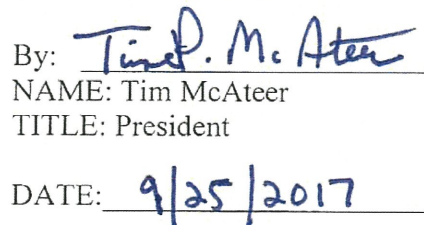 By: Tim P. McAteer
NAME: Tim McAteer
TITLE: President
DATE: 9/25/2017